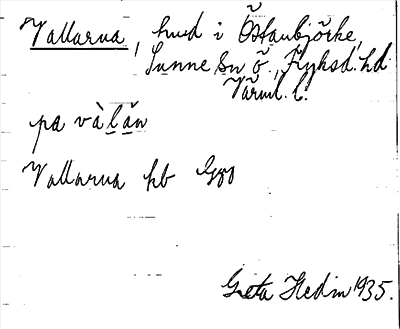 Vallarna, hmd i Östanbjörke,
Sunne Sn ö., Fryksd. hd
Värml. l.
pa vàlǎn
Vallarna hb
Greta Hedin 1935.